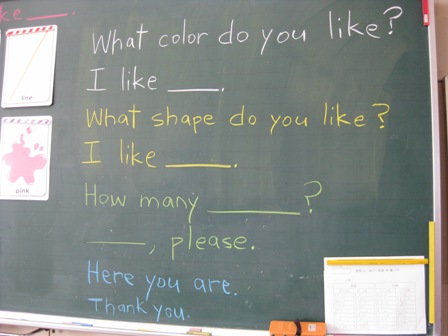 ke ___.
What color do you like?
I like ___.
line
What shape do you like?
I like ____.
pink
How many ______?
___, please.
Here you are.
Thank you.